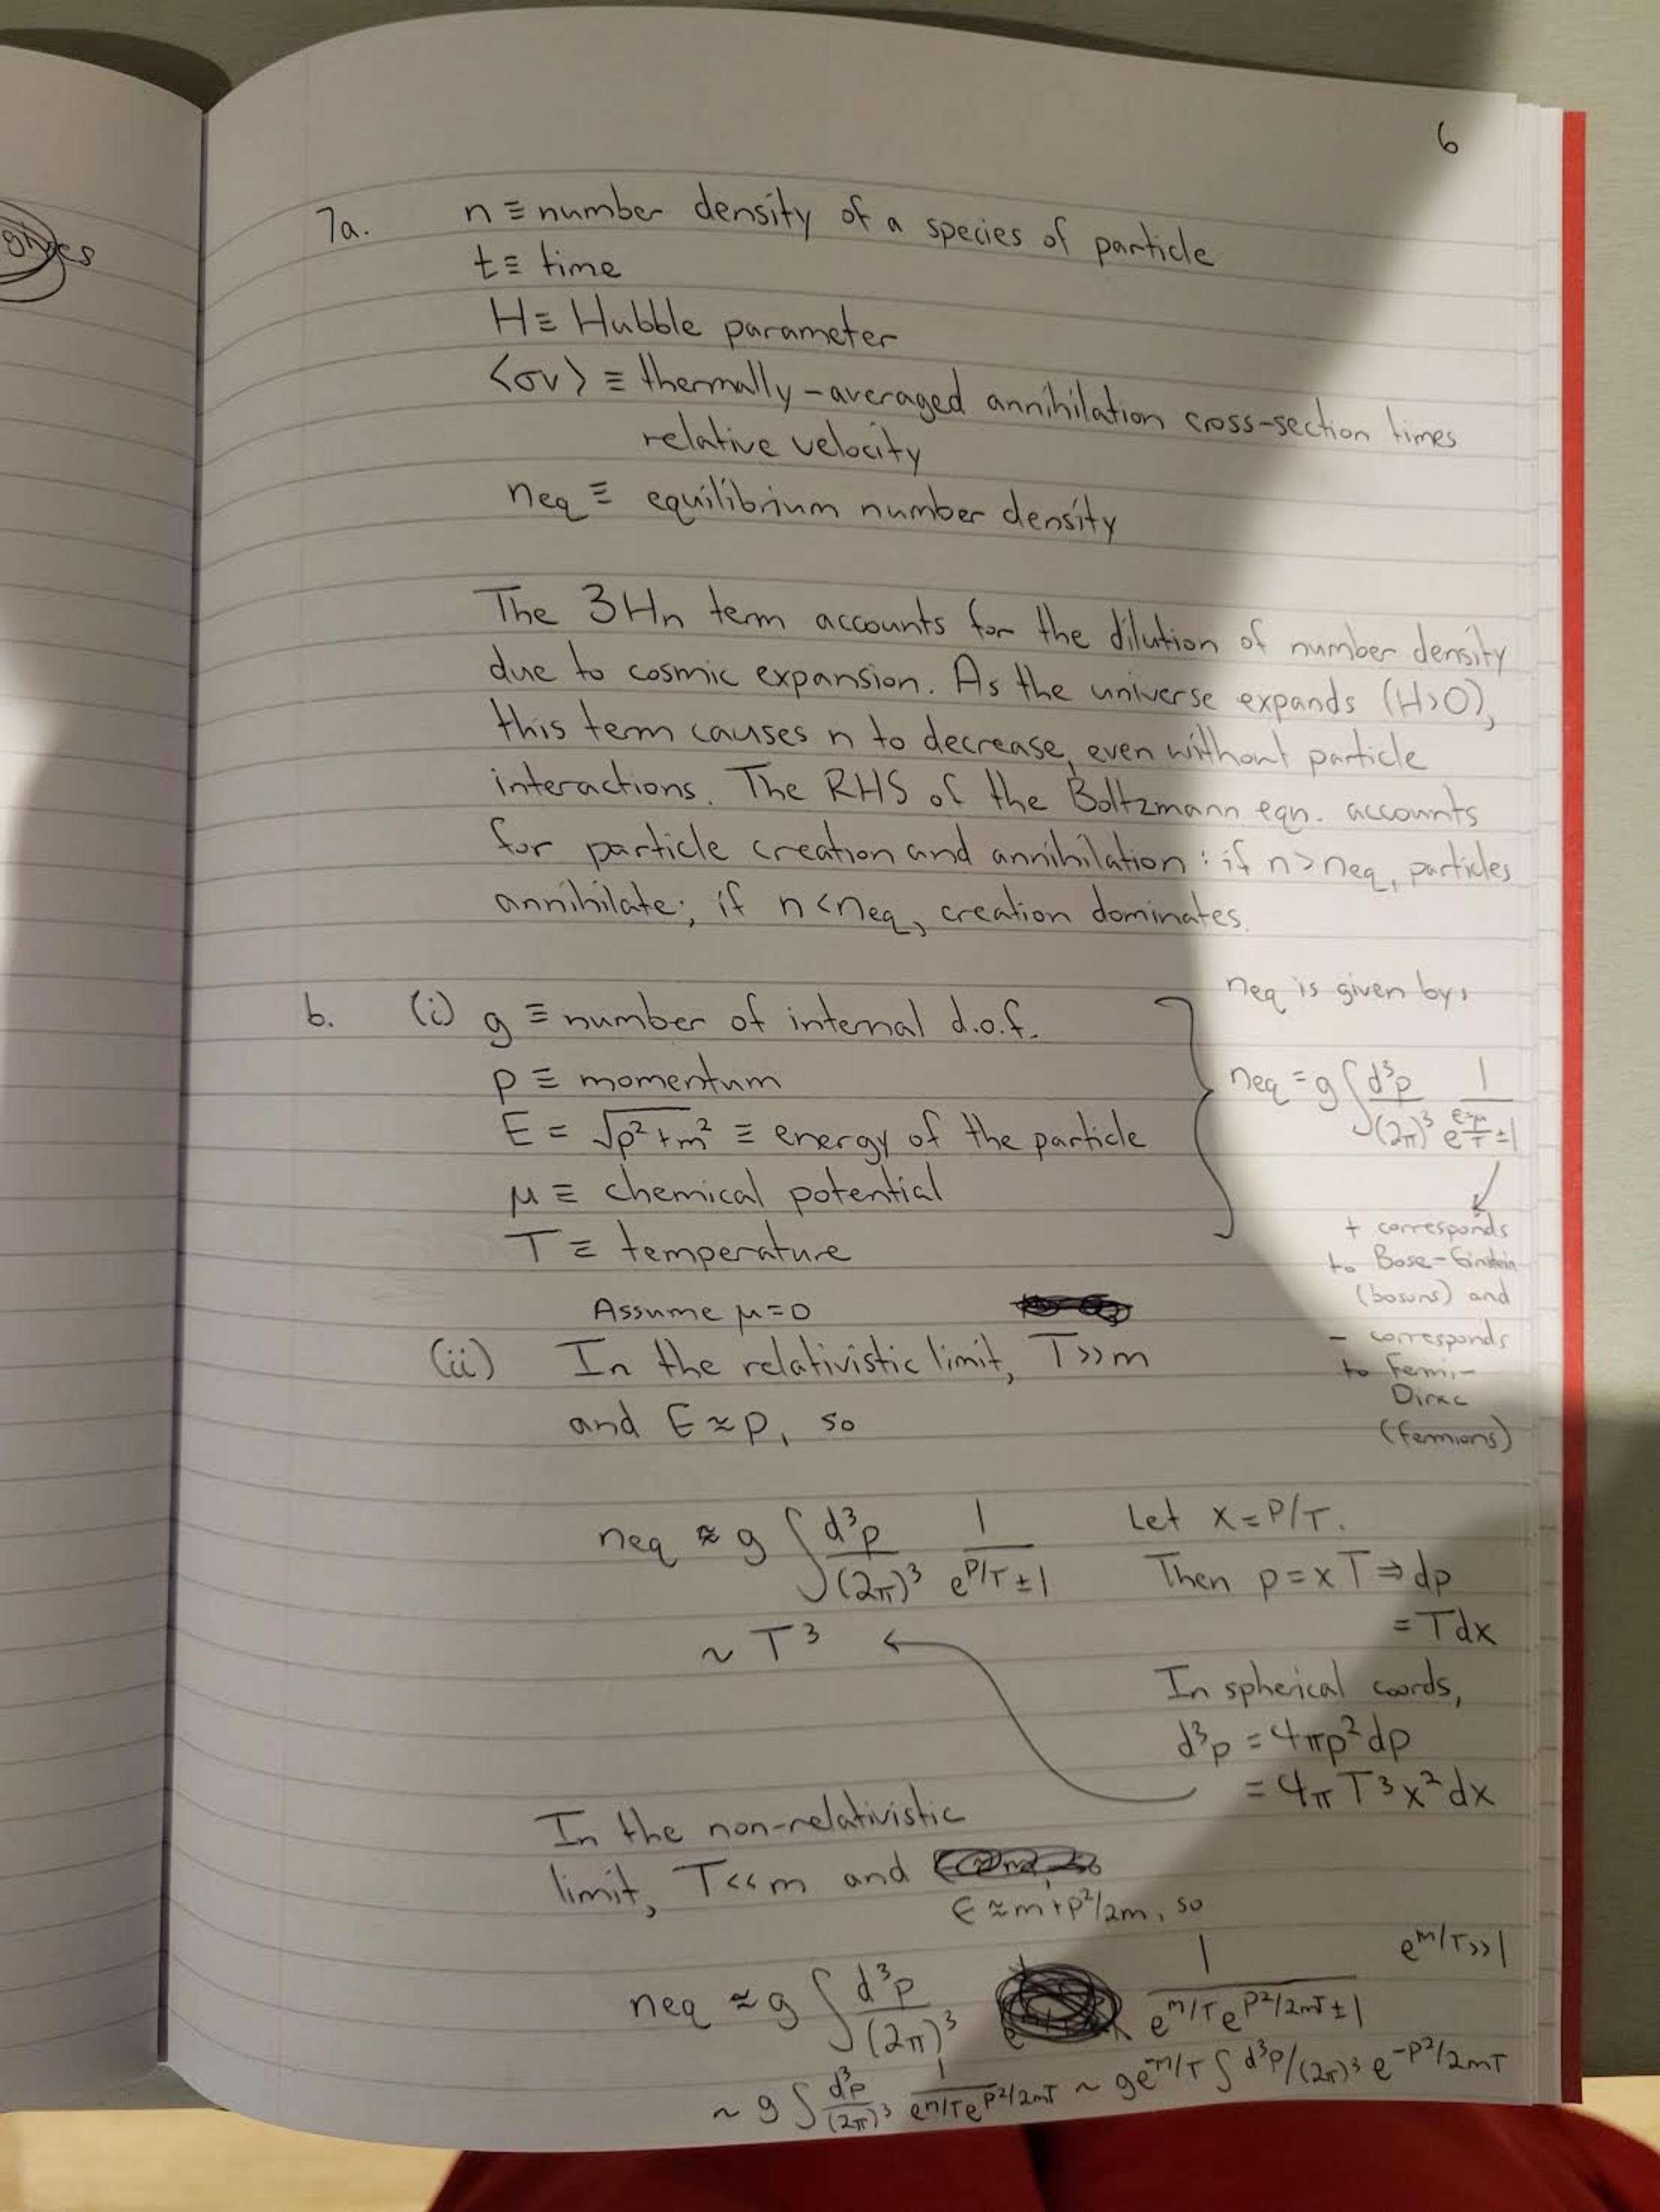 6
7a. n ≡ number density of a species of particle
t ≡ time
H ≡ Hubble parameter
<σv> ≡ thermally-averaged annihilation cross-section times
relative velocity
neq ≡ equilibrium number density
The 3Hn term accounts for the dilution of number density
due to cosmic expansion. As the universe expands (H>0),
this term causes n to decrease, even without particle
interactions. The RHS of the Boltzmann eqn. accounts
for particle creation and annihilation: if n>neq, particles
annihilate; if n<neq, creation dominates.
b. (i) g ≡ number of internal d.o.f.
p ≡ momentum
E = √p²+m² ≡ energy of the particle
μ ≡ chemical potential
T ≡ temperature
neq is given by:
neq = g ∫ d³p/(2π)³ 1/(e^(E-μ/T) ± 1)
+ corresponds
to Bose-Einstein
(bosons) and
- corresponds
to Fermi-
Dirac
(fermions)
Assume μ=0
(ii) In the relativistic limit, T>>m
and E≈p, so
neq ≈ g ∫ d³p/(2π)³ 1/(e^(p/T) ± 1)
~ T³
Let x = P/T.
Then p = xT ⇒ dp
= Tdx
In spherical coords,
d³p = 4πp²dp
= 4πT³x²dx
In the non-relativistic
limit, T<<m and
E≈m+p²/2m, so
neq ≈ g ∫ d³p/(2π)³ 1/(e^(m/T) e^(p²/2mT) ± 1) e^(m/T)>>1
~ g ∫ d³p/(2π)³ 1/(e^(m/T) e^(p²/2mT)) ~ ge^(-m/T) ∫ d³p/(2π)³ e^(-p²/2mT)